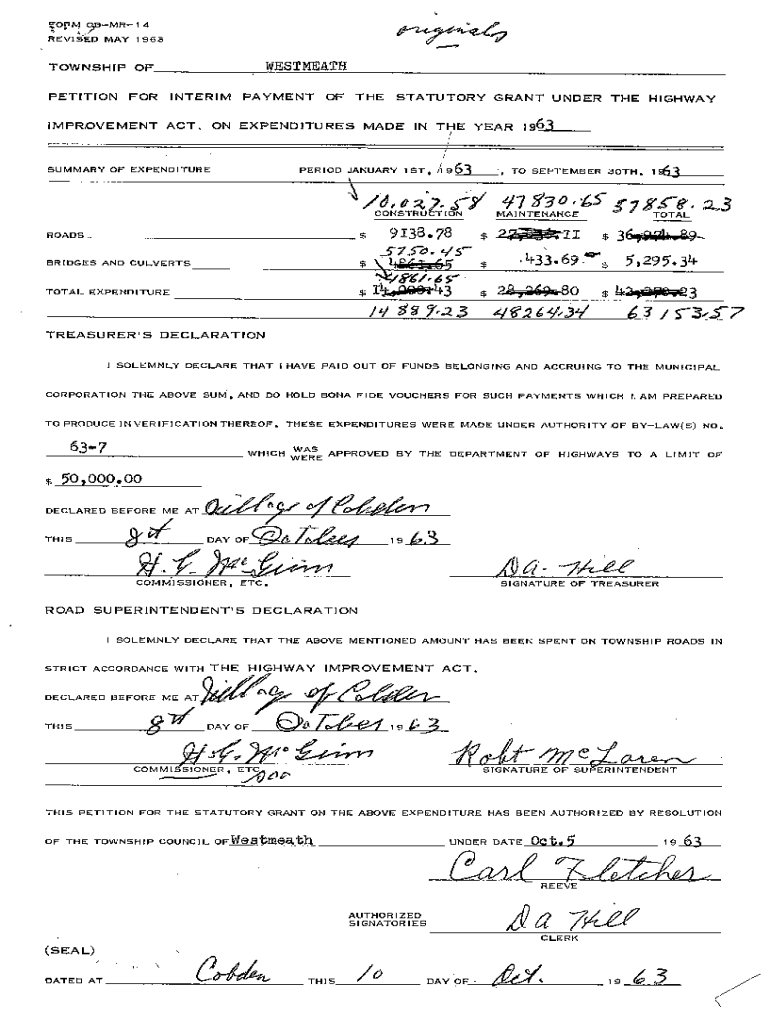 FORM OB-MR-14
originals
REVISED MAY 1963
TOWNSHIP OF WESTMEATH
PETITION FOR INTERIM PAYMENT OF THE STATUTORY GRANT UNDER THE HIGHWAY
IMPROVEMENT ACT. ON EXPENDITURES MADE IN THE YEAR 1963
SUMMARY OF EXPENDITURE PERIOD JANUARY 1ST, 1963, TO SEPTEMBER 30TH, 1963
10,027.58 47830.65 57858.23
CONSTRUCTION MAINTENANCE TOTAL
ROADS $ 9138.78 $ $
5750.45
BRIDGES AND CULVERTS $ $ .433.69 $ 5,295.34
4861.65
TOTAL EXPENDITURE $ $ $
14889.23 48264.34 63153.57
TREASURER'S DECLARATION
I SOLEMNLY DECLARE THAT I HAVE PAID OUT OF FUNDS BELONGING AND ACCRUING TO THE MUNICIPAL
CORPORATION THE ABOVE SUM, AND DO HOLD BONA FIDE VOUCHERS FOR SUCH PAYMENTS WHICH I AM PREPARED
TO PRODUCE IN VERIFICATION THEREOF. THESE EXPENDITURES WERE MADE UNDER AUTHORITY OF BY-LAW(S) NO.
63-7 WHICH WAS WERE APPROVED BY THE DEPARTMENT OF HIGHWAYS TO A LIMIT OF
$ 50,000.00
DECLARED BEFORE ME AT Village of Cobden
THIS 8th DAY OF October 1963
H. G. McGinn D A. Hill
COMMISSIONER, ETC. SIGNATURE OF TREASURER
ROAD SUPERINTENDENT'S DECLARATION
I SOLEMNLY DECLARE THAT THE ABOVE MENTIONED AMOUNT HAS BEEN SPENT ON TOWNSHIP ROADS IN
STRICT ACCORDANCE WITH THE HIGHWAY IMPROVEMENT ACT.
DECLARED BEFORE ME AT Village of Cobden
THIS 8th DAY OF October 1963
H. G. McGinn Robt McLaren
COMMISSIONER, ETC SIGNATURE OF SUPERINTENDENT
THIS PETITION FOR THE STATUTORY GRANT ON THE ABOVE EXPENDITURE HAS BEEN AUTHORIZED BY RESOLUTION
OF THE TOWNSHIP COUNCIL OF Westmeath UNDER DATE Oct.5 1963
Carl Fletcher
REEVE
AUTHORIZED
SIGNATORIES D A Hill
CLERK
(SEAL)
DATED AT Cobden THIS 10 DAY OF Oct. 1963